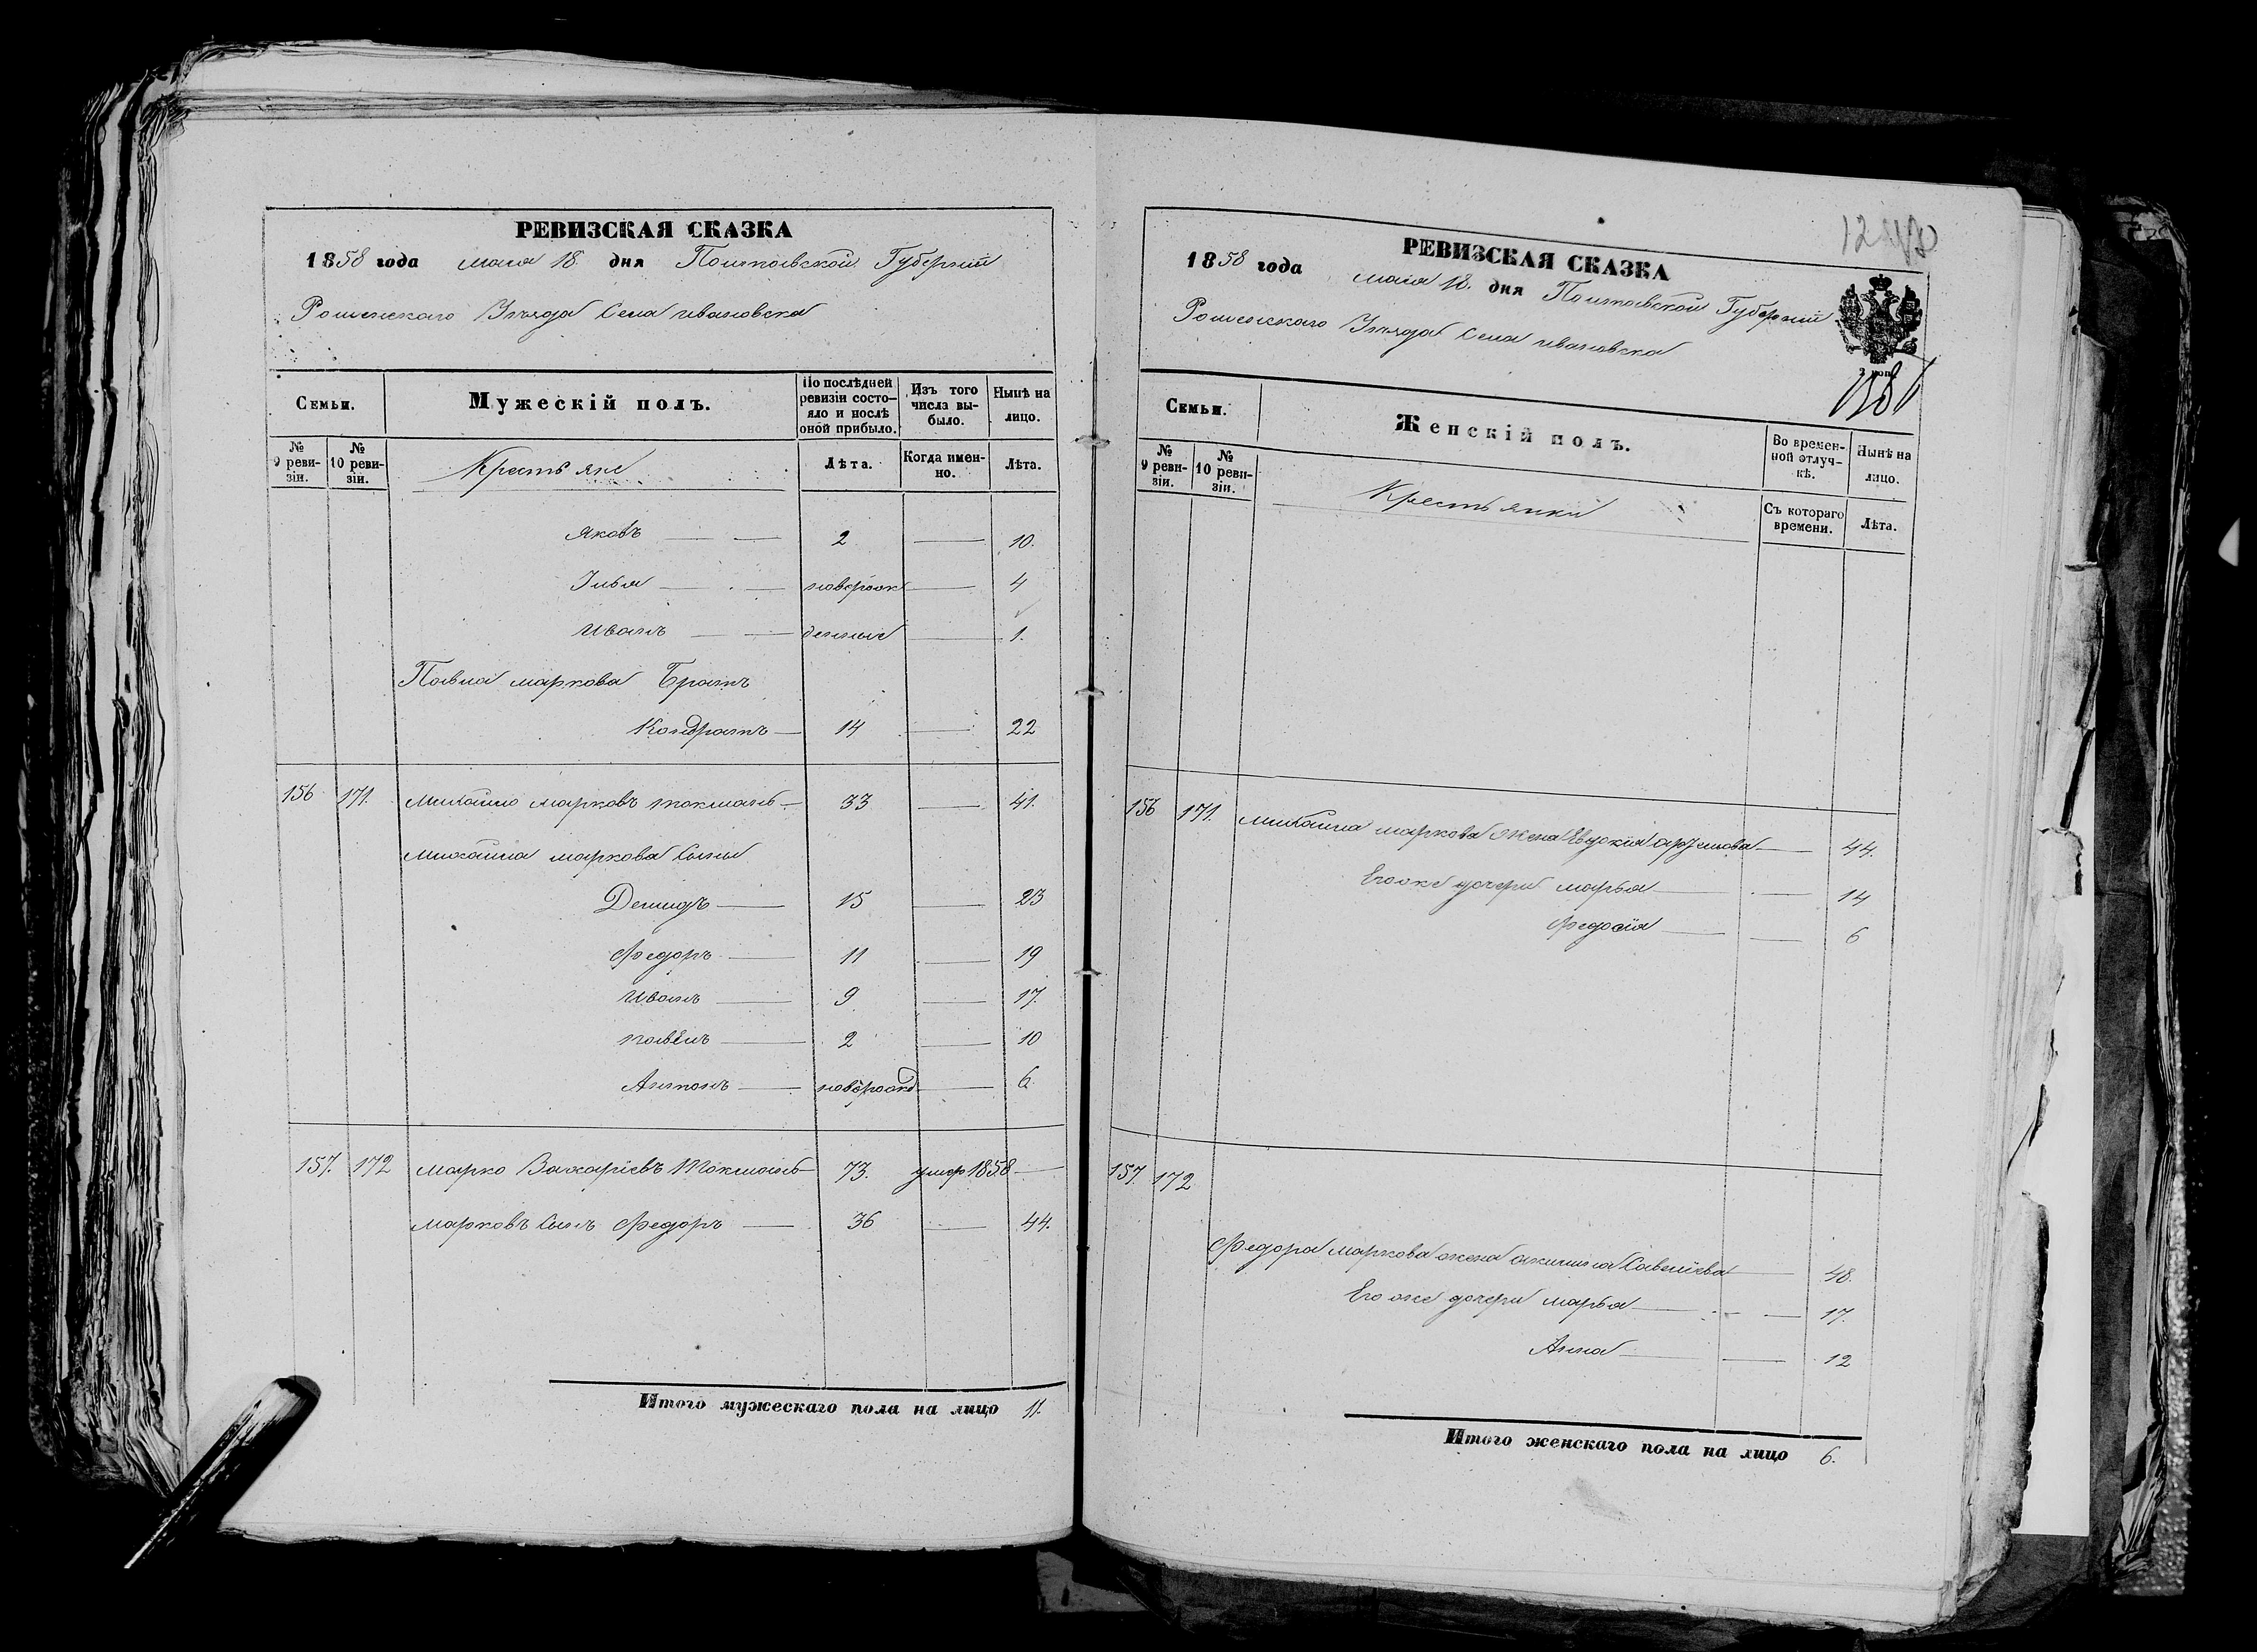 РЕВИЗСКАЯ СКАЗКА
1858 года мая 18 дня Полтавской Губерніи
Роменскаго Уѣзда Села ивановска
Семьи.
Мужескій полъ.
По послѣдней ревизіи состояло и послѣ оной прибыло.
Изъ того числа выбыло.
Нынѣ на лицо.
№ 9 ревизіи.
№ 10 ревизіи.
Крестьяне
Лѣта.
Когда именно.
Лѣта.
Яковъ — — 2 — 10.
Илья — — новорож — 4
Иванъ — — денные — 1.
Павла маркова Братъ
Кондратъ — 14 — 22
156 171. Михайло марковъ токмань — 33 — 41.
Михайла маркова Сыны
Демидъ — 15 — 23
Федоръ — 11 — 19
Иванъ — 9 — 17.
павелъ — 2 — 10
Антонъ — новорожд — 6
157. 172 марко Захаріевъ токмань — 73. умер 1858 —
марковъ Сынъ Федоръ — 36 — 44.
Итого мужескаго пола на лицо 11.
РЕВИЗСКАЯ СКАЗКА
1858 года мая 18. дня Полтавской Губерніи
Роменскаго Уѣзда Села ивановска
Семьи.
Женскій полъ.
Во временной отлучкѣ.
Нынѣ на лицо.
№ 9 ревизіи.
№ 10 ревизіи.
Крестьянки
Съ котораго времени.
Лѣта.
156 171. Михайла маркова жена Евдокія — 44.
Егоже дочери марья — — 14
Федосія — — 6
157. 172
Федора маркова жена акилина Савеліева — 48.
Его же дочери марья — — 17.
Анна — — 12
Итого женскаго пола на лицо 6.